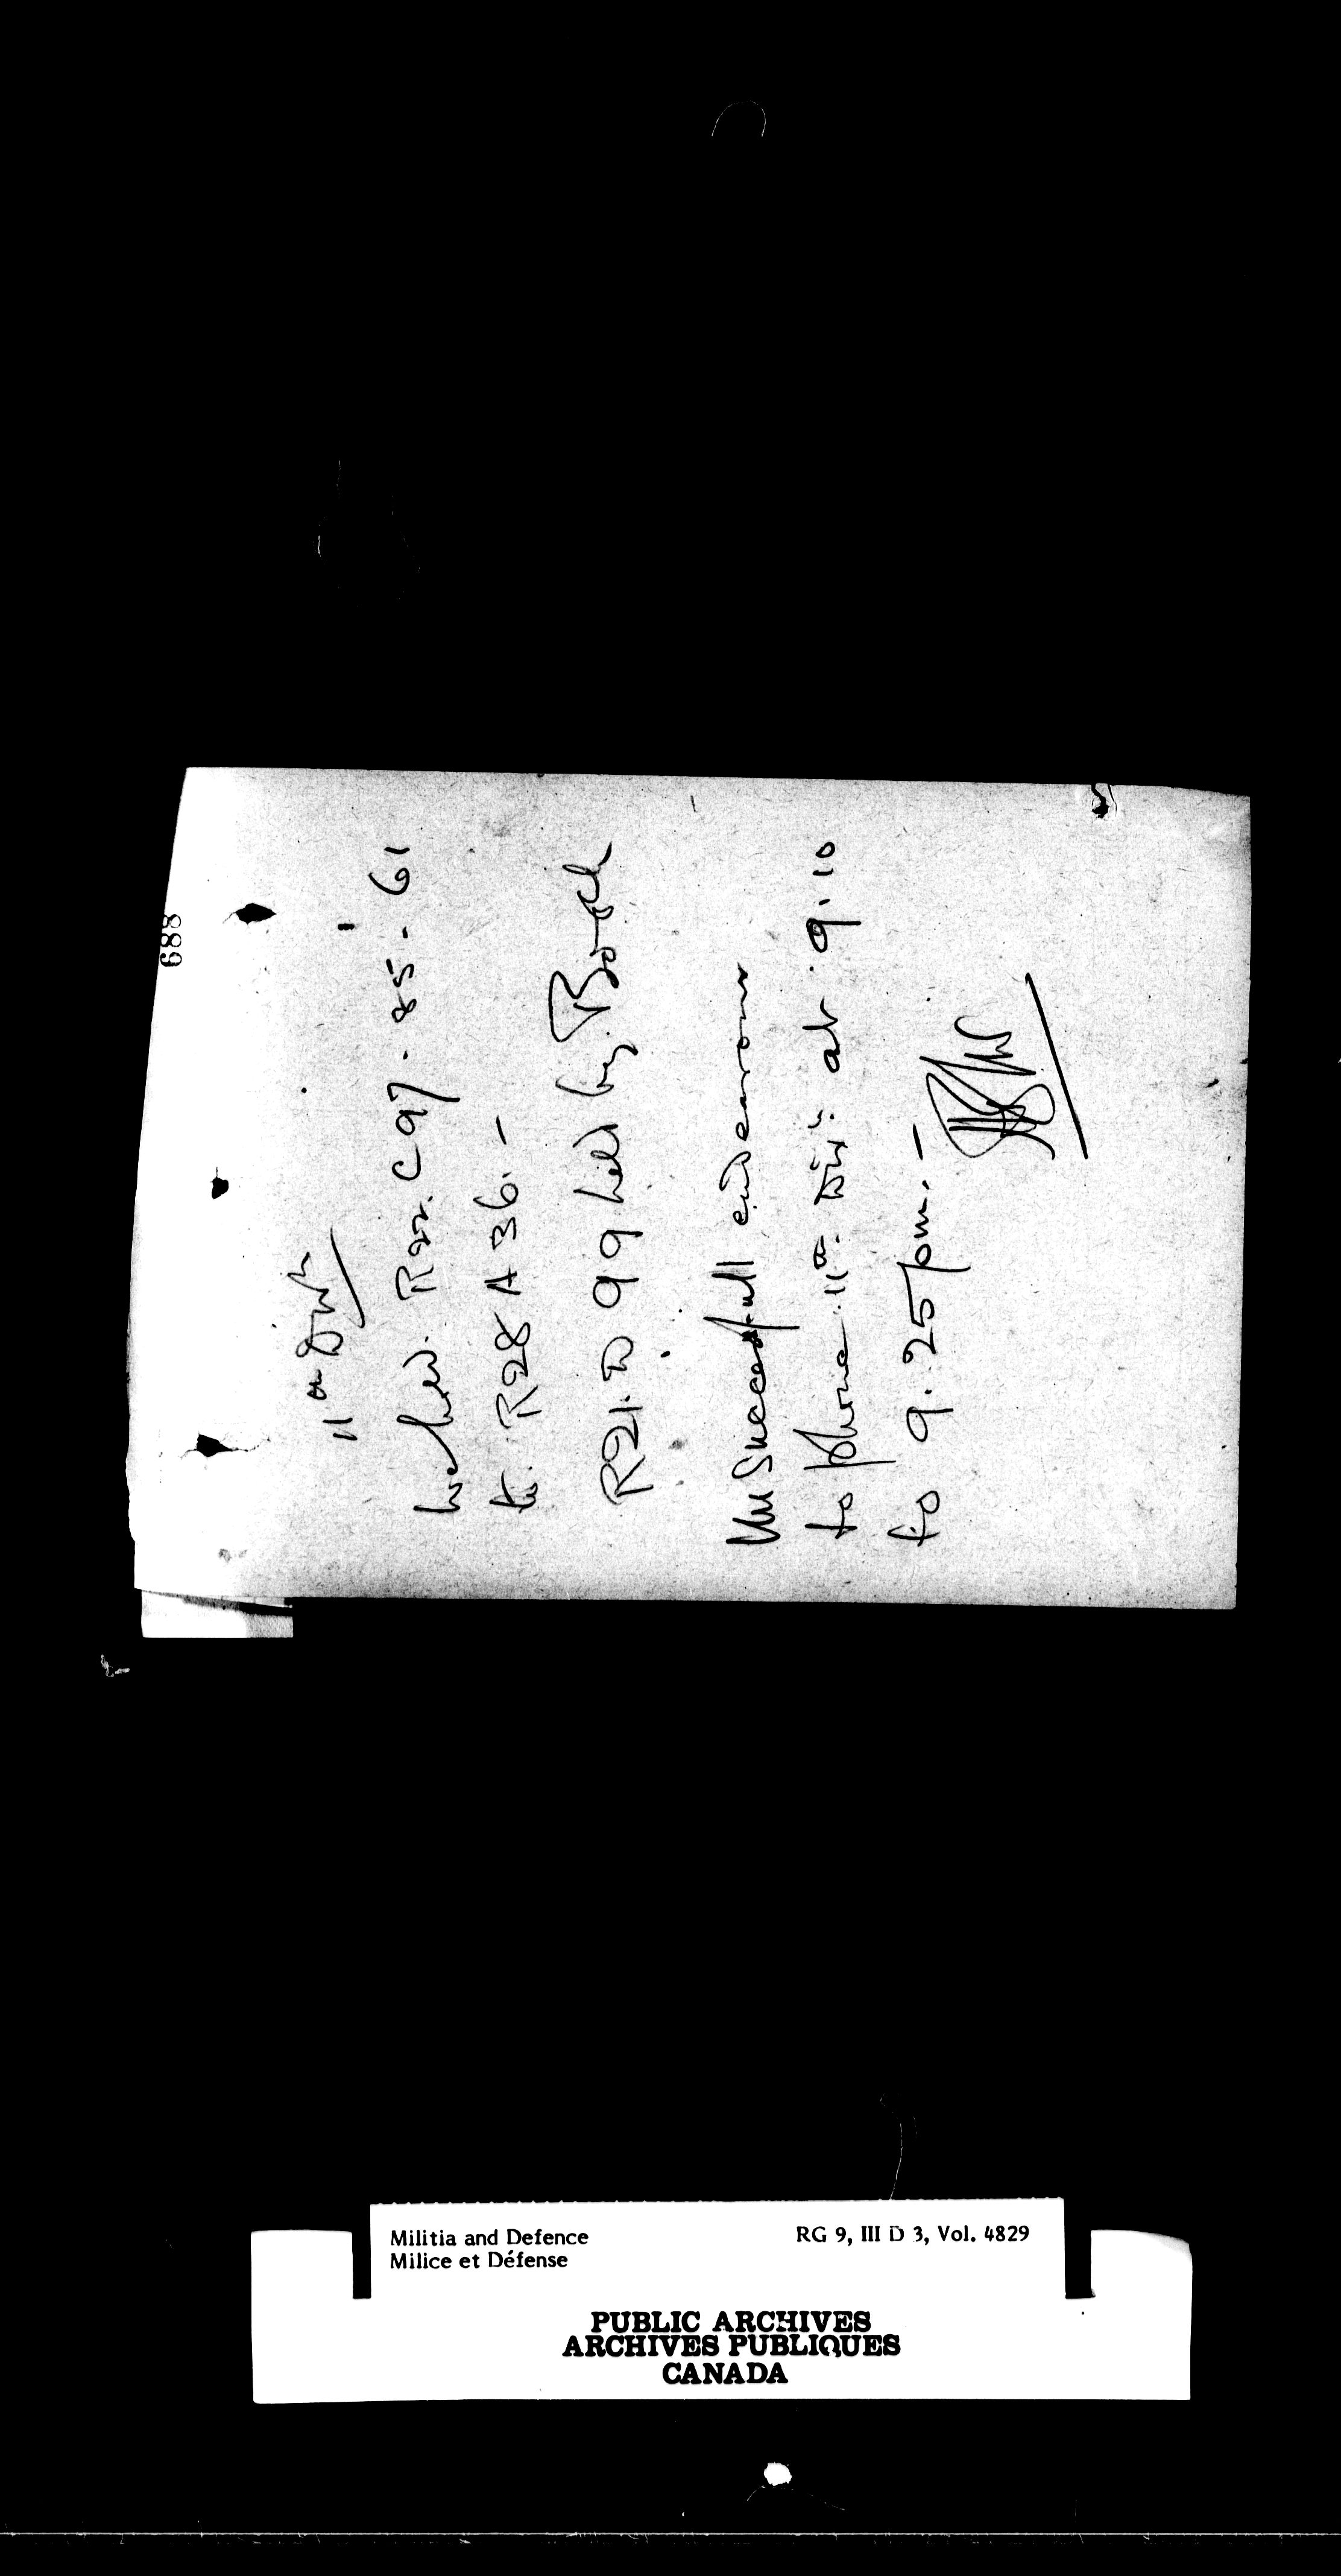 689
11th Div
We held R22. C97. 85. 61
to R28 A 36. —
R21. D 99 held by Bosch
Un Successfull endeavours
to phone 11th Div: at 9.10
to 9.25 pm. —
Militia and Defence
Milice et Défense
RG 9, III D 3, Vol. 4829
PUBLIC ARCHIVES
ARCHIVES PUBLIQUES
CANADA